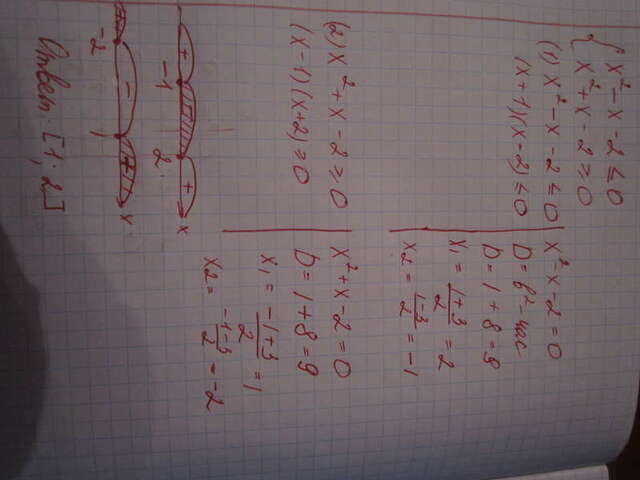 { x² - x - 2 ≤ 0
{ x² + x - 2 ≥ 0
(1) x² - x - 2 ≤ 0
(x + 1)(x - 2) ≤ 0
x² - x - 2 = 0
D = b² - 4ac
D = 1 + 8 = 9
x₁ = (1+3)/2 = 2
x₂ = (1-3)/2 = -1
(2) x² + x - 2 ≥ 0
(x - 1)(x + 2) ≥ 0
x² + x - 2 = 0
D = 1 + 8 = 9
x₁ = (-1+3)/2 = 1
x₂ = (-1-3)/2 = -2
+ - +
-1 2 x
+ - +
-2 1 x
Ответ: [1; 2]